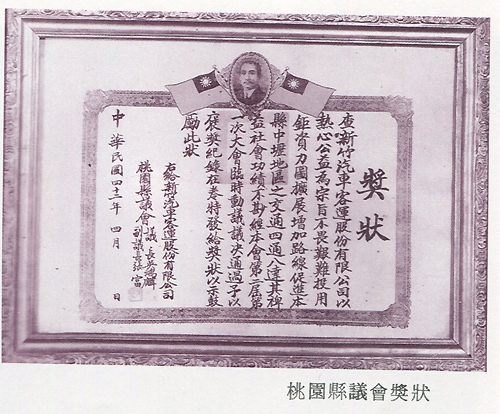 獎狀
查新竹汽車客運股份有限公司以
熱心公益為宗旨不畏艱難投用
鉅資力圖擴展增加路線促進本
縣中壢地區之交通四通八達其裨
益社會功績不尠經本會第二屆第
一次大會臨時動議議決通過予以
褒獎紀錄在卷特發給獎狀以示鼓
勵此狀
右給新竹汽車客運股份有限公司
桃園縣議會議長吳鴻麟
副議長張富
中華民國四十二年四月 日
桃園縣議會獎狀